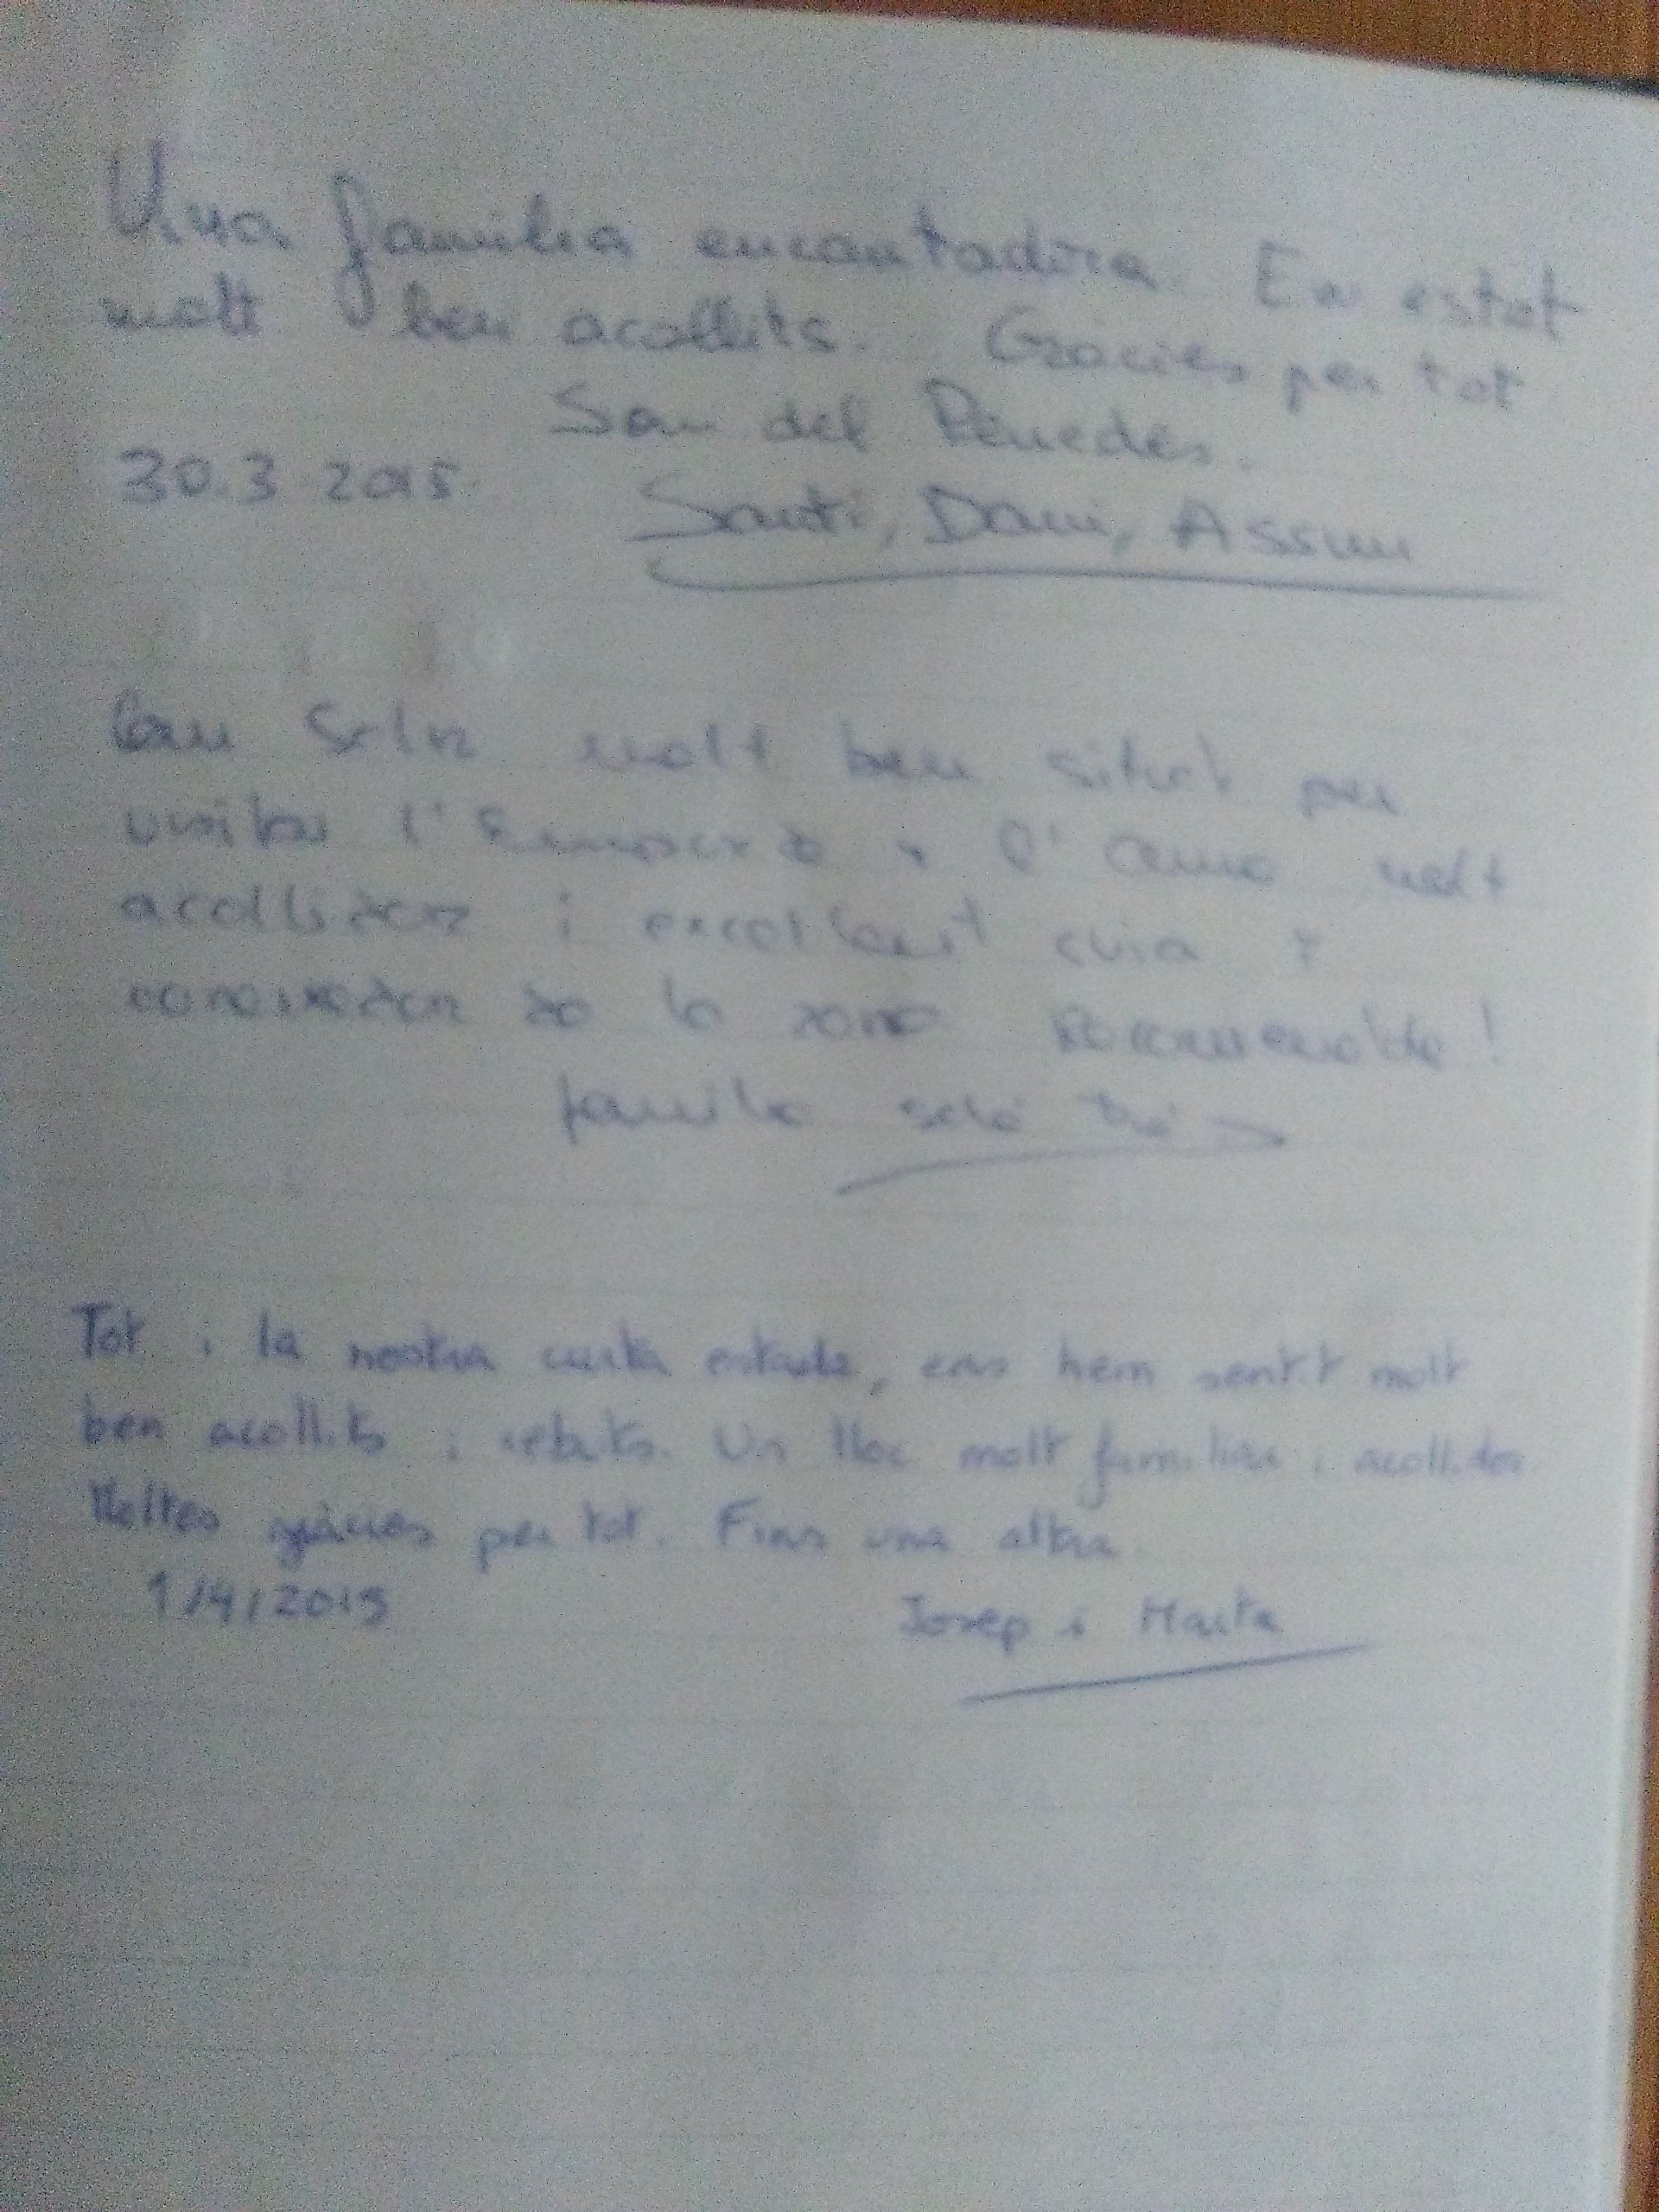 Una familia encantadora. Em estat
molt ben acollits. Gràcies per tot
Som del Penedès.
30.3.2015
Santi, Dani, Assum
molt ben situat per
visitar l'Empordà
acollidor i excel·lent cuina i
de la zona Recomenable!
família
Tot i la nostra curta estada, ens hem sentit molt
ben acollits i rebuts. Un lloc molt familiar i acollidor
Moltes gràcies per tot. Fins una altra.
1/4/2015
Josep i Marta